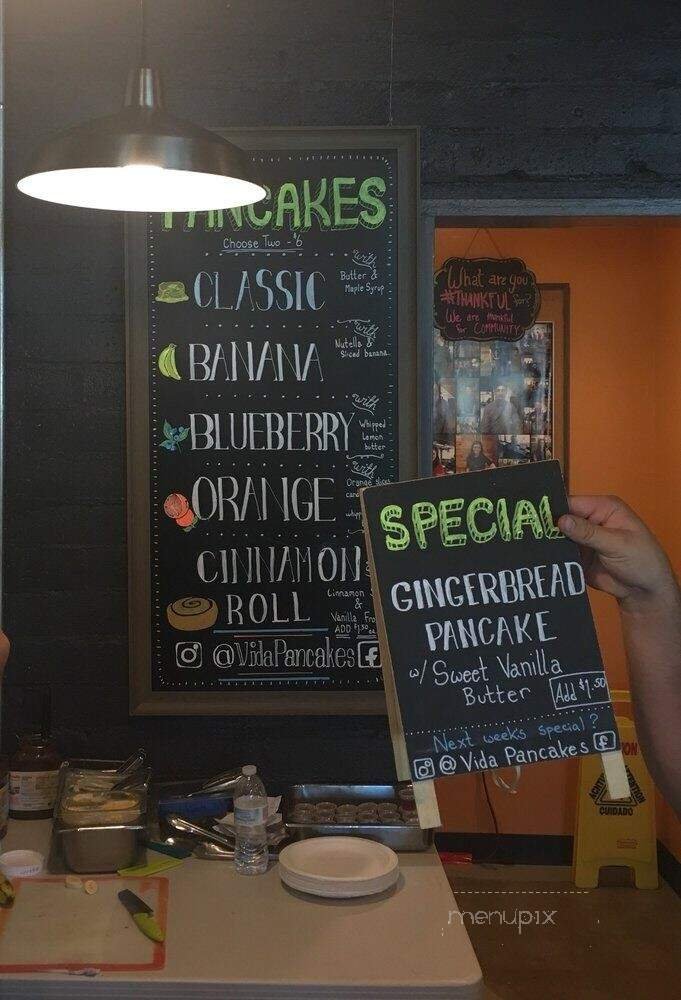 PANCAKES
Choose Two - $6
CLASSIC
with
Butter &
Maple Syrup
BANANA
with
Nutella &
Sliced banana
BLUEBERRY
with
Whipped
Lemon
butter
ORANGE
with
Orange slices
CINNAMON
ROLL
Cinnamon
&
Vanilla
ADD $1.50
@VidaPancakes
What are you
#THANKFUL for?
We are thankful
for COMMUNITY
SPECIAL
GINGERBREAD
PANCAKE
w/ Sweet Vanilla
Butter
Add $1.50
Next weeks special?
@Vida Pancakes
CUIDADO
menupix